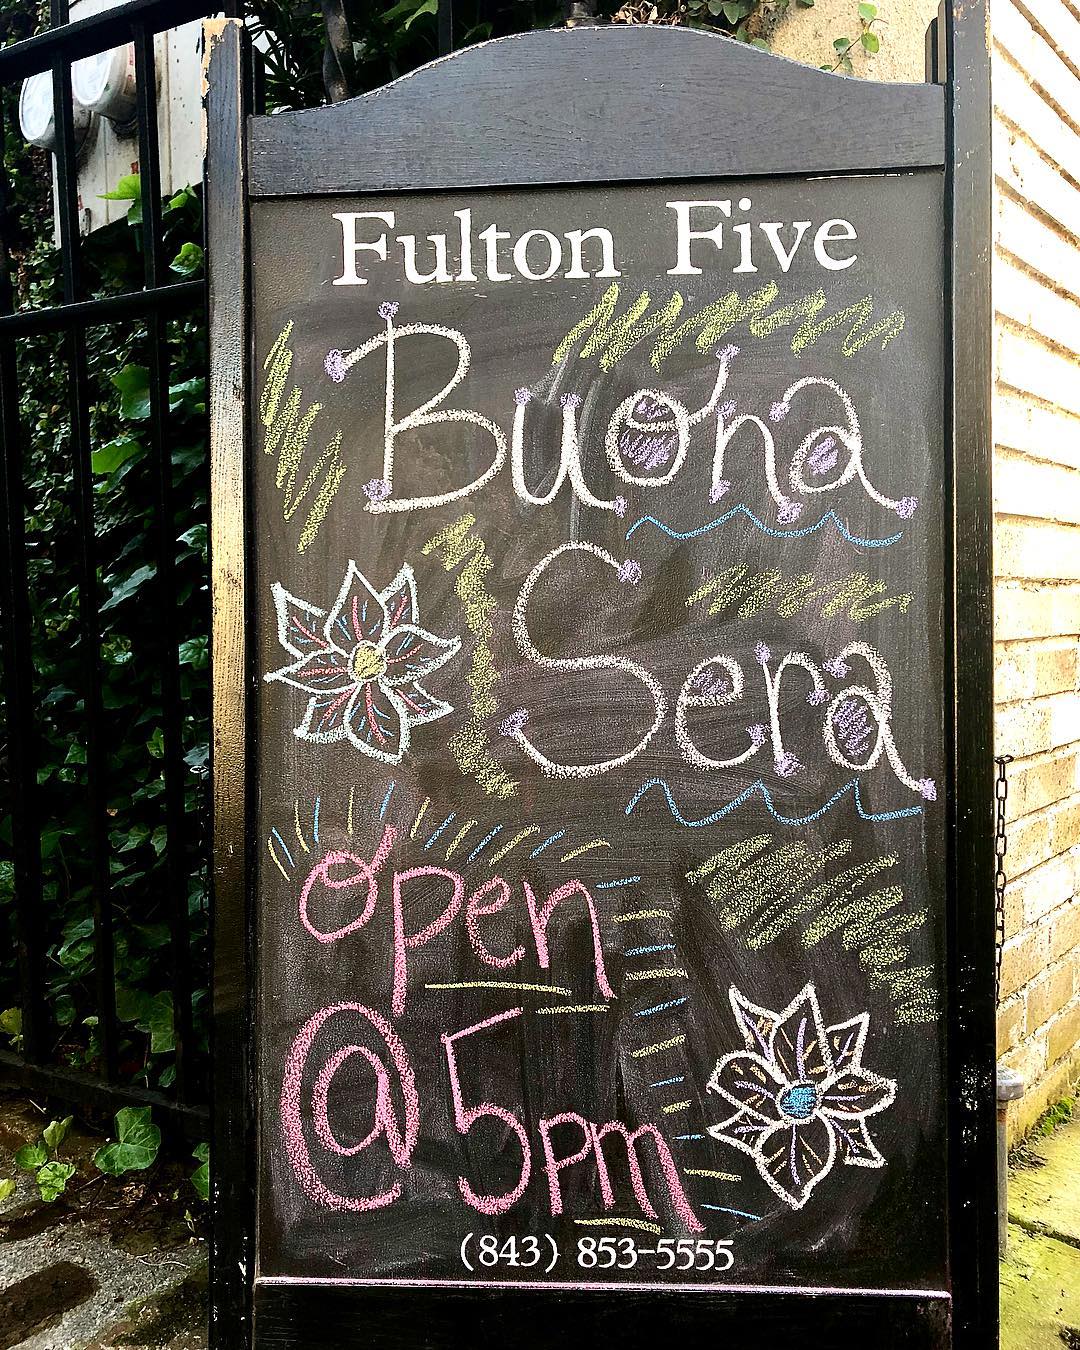 Fulton Five
Buona
Sera
open
@ 5pm
(843) 853-5555